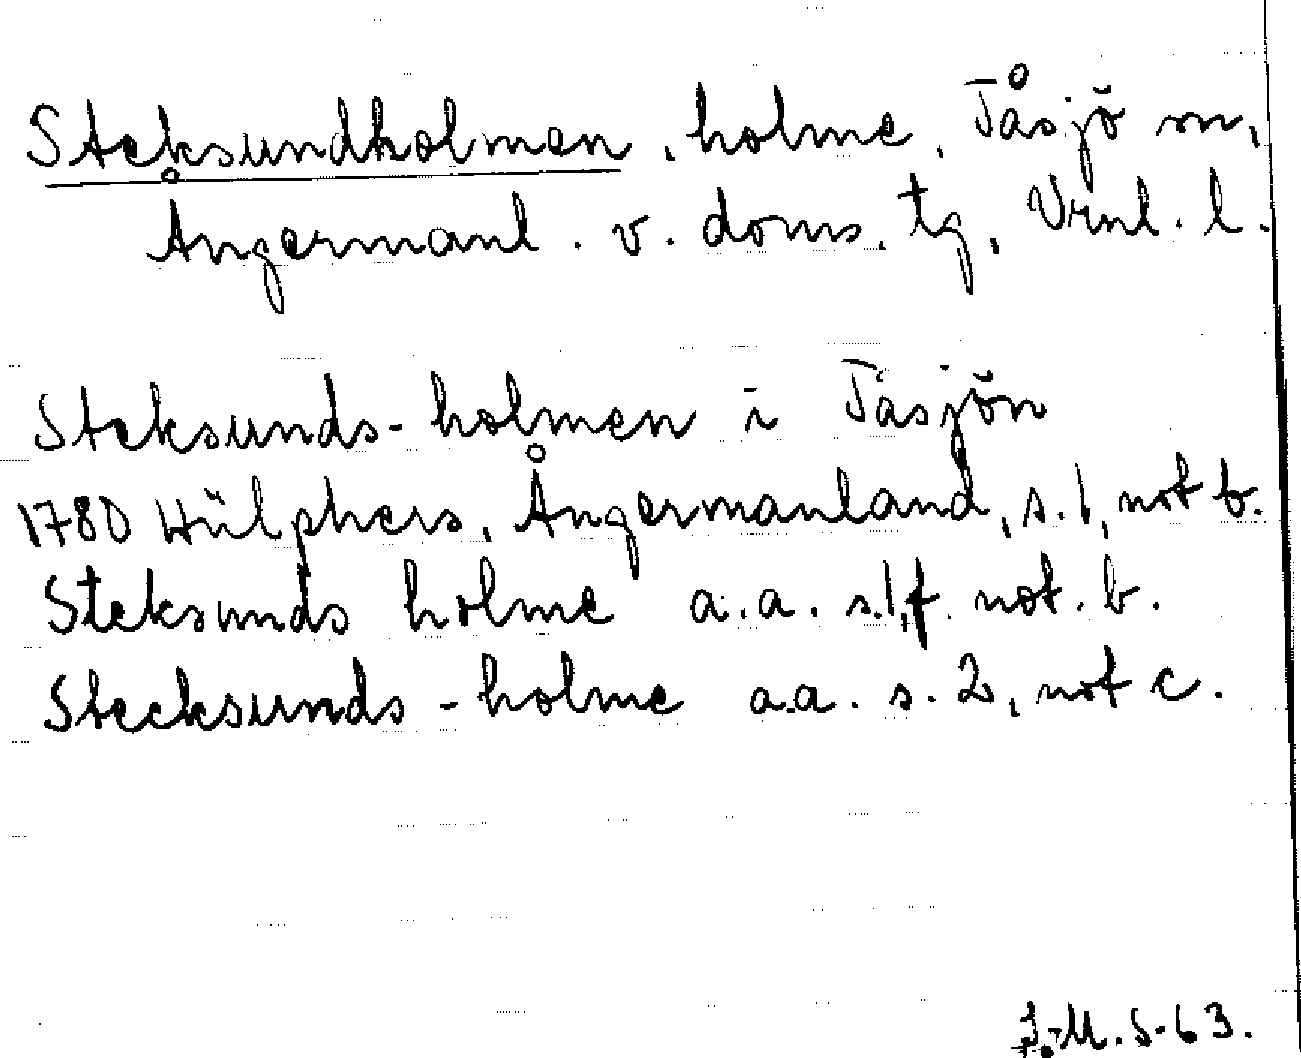 Steksundholmen, holme, Tåsjö sn,
Ångermanl. v. doms. tg, Vrnl. l.
Steksunds-holmen i Tåsjön
1780 Hülphers, Ångermanland, s. 1, not b.
Steksunds holme a.a. s. 1, f. not. b.
Stecksunds-holme a.a. s. 2, not c.
J.-M. S-63.